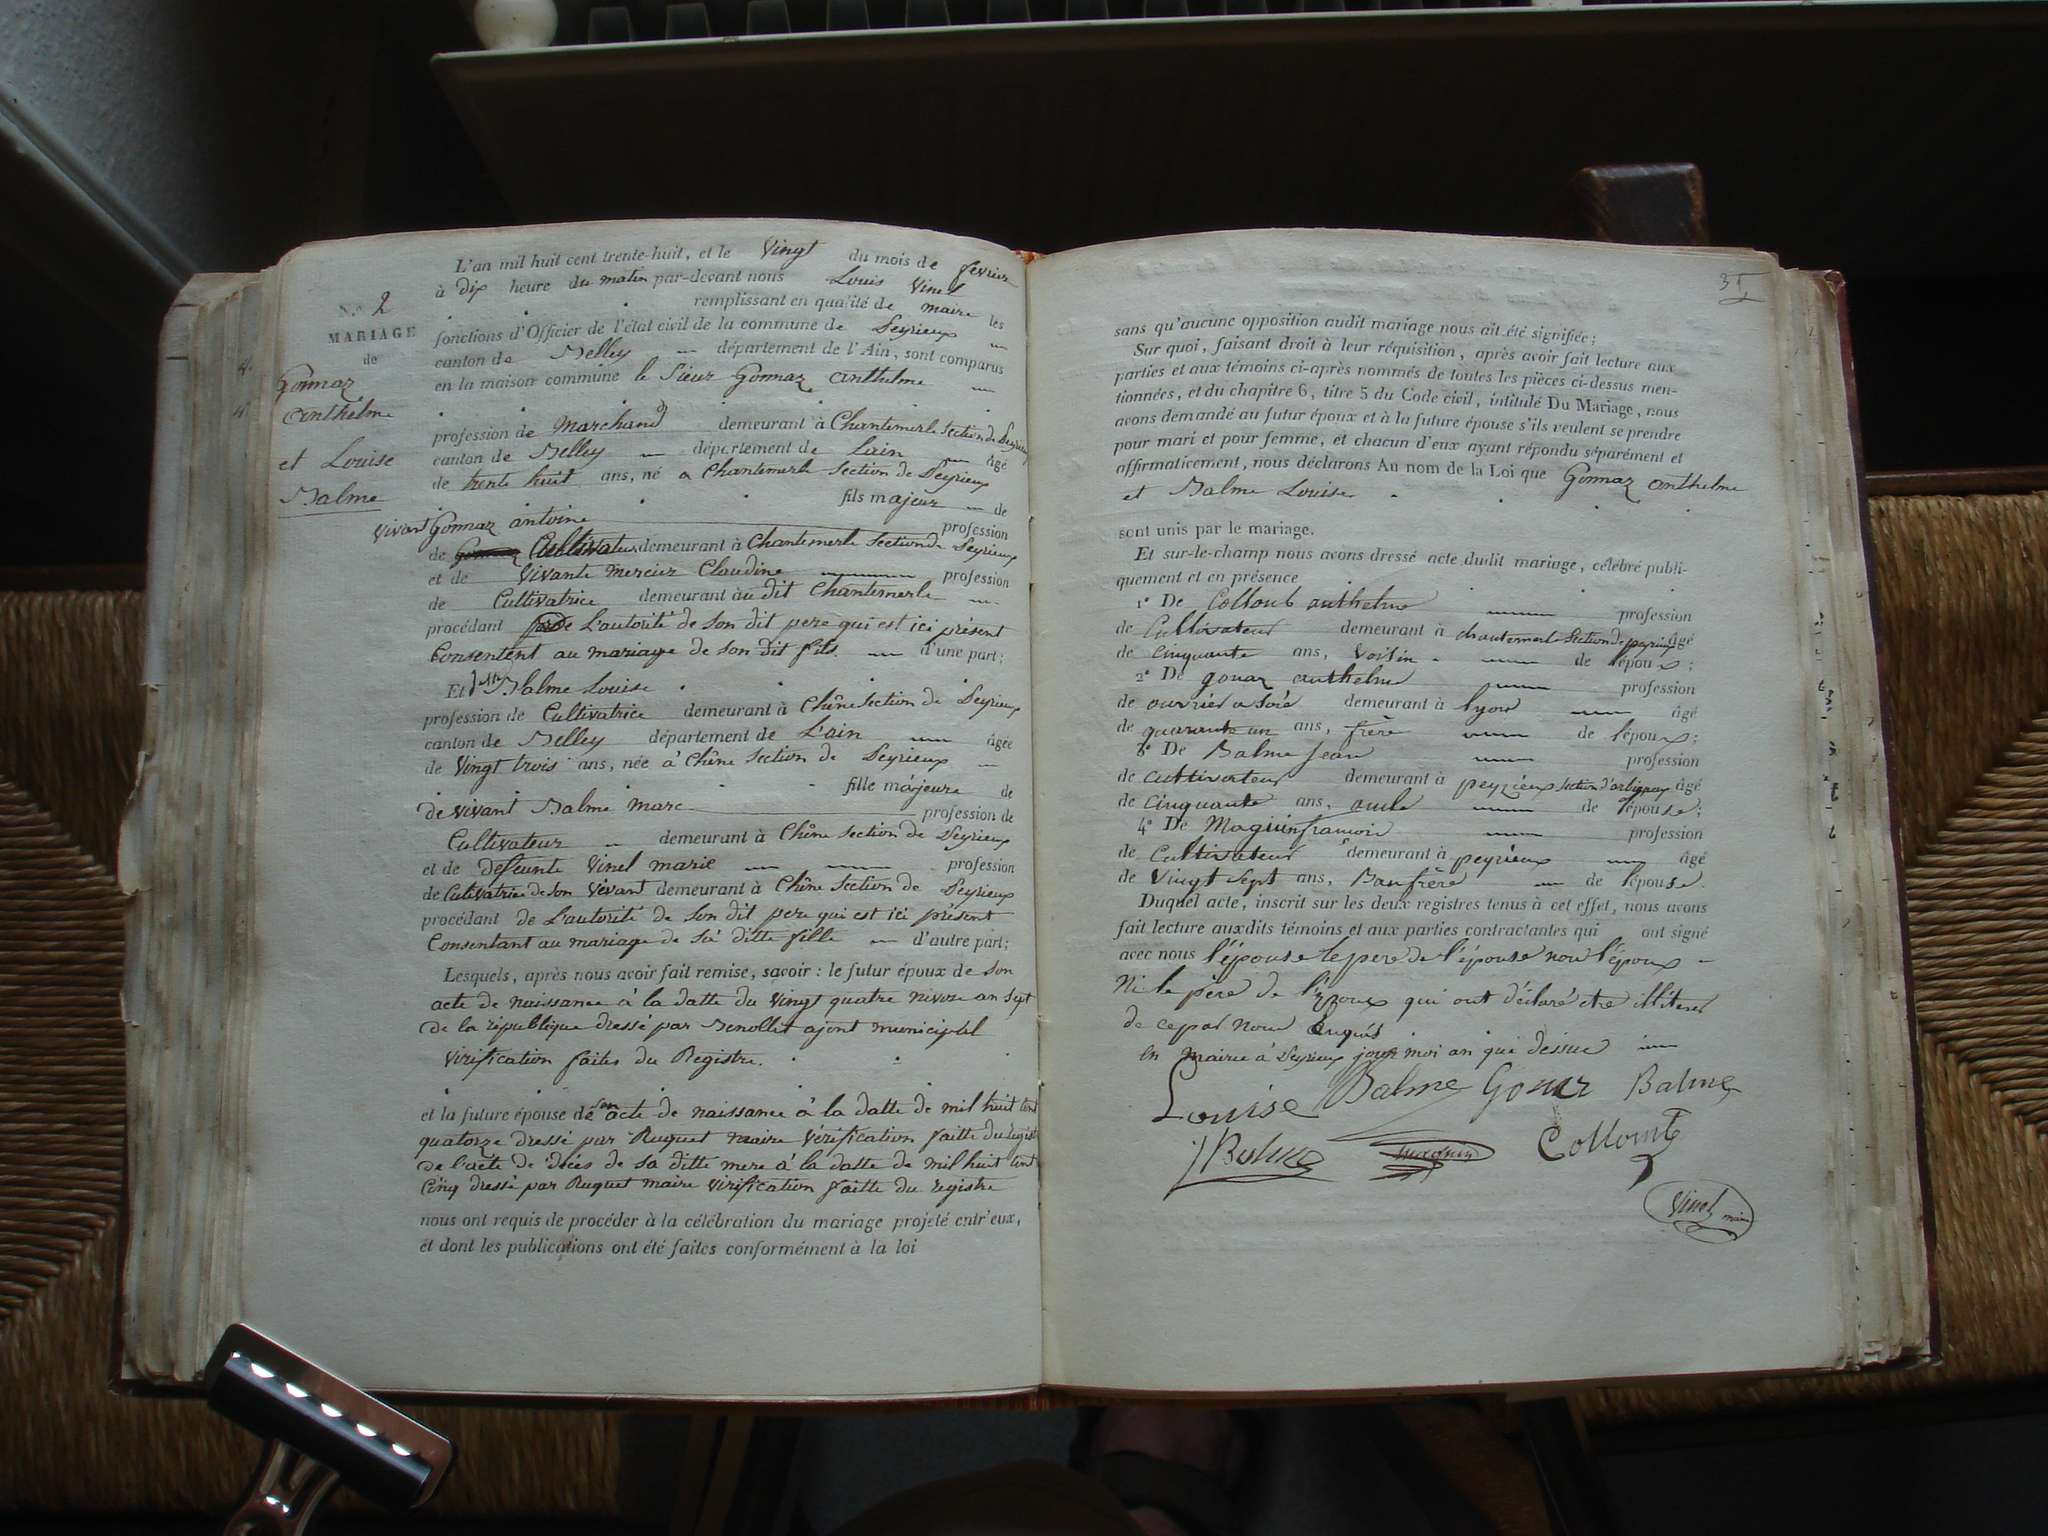 L'an mil huit cent trente-huit, et le vingt du mois de février
à dix heure du matin par-devant nous Louis Vinel
remplissant en qualité de maire les
fonctions d'Officier de l'état civil de la commune de Peyrieux
canton de Belley département de l'Ain, sont comparus
en la maison commune le Sieur Gonnaz anthelme
N.o 2
MARIAGE
de
Gonnaz
Anthelme
et Louise
Balme
profession de Marchand demeurant à Chantemerle section de Peyrieux
canton de Belley département de Lain âgé
de trente huit ans, né a Chantemerle section de Peyrieux
fils majeur de
vivant Gonnaz antoine profession
de Cultivateur demeurant à Chantemerle section de Peyrieux
et de vivante mercier Claudine profession
de Cultivatrice demeurant au dit Chantemerle
procédant de L'autorité de son dit pere qui est ici présent
Consentent au mariage de son dit fils. d'une part;
Et Balme Louise
profession de Cultivatrice demeurant à Chêne section de Peyrieux
canton de Belley département de L'ain âgée
de vingt trois ans, née à Chêne section de Peyrieux
fille majeure de
de vivant Balme marc profession de
Cultivateur demeurant à Chêne section de Peyrieux
et de defeunte Vinel marie profession
de Cultivatrice de son vivant demeurant à Chêne section de Peyrieux
procédant de L'autorité de son dit pere qui est ici présent
Consentant au mariage de sa ditte fille d'autre part;
Lesquels, après nous avoir fait remise, savoir : le futur époux de son
acte de naissance à la datte du vingt quatre nivose an sept
de la république dressé par Benollet ajont municipal
virification faites du Registre.
et la future épouse de son acte de naissance à la datte de mil huit cent
quatorze dressé par Ruquet maire vérification faitte du registre
de l'acte de décés de sa ditte mere à la datte de mil huit cent
cinq dressé par Ruquet maire virification faitte du registre
nous ont requis de procéder à la célébration du mariage projeté entr'eux,
et dont les publications ont été faites conformément à la loi
35
sans qu'aucune opposition audit mariage nous ait été signifiée;
Sur quoi, faisant droit à leur réquisition, après avoir fait lecture aux
parties et aux témoins ci-après nommés de toutes les pièces ci-dessus men-
tionnées, et du chapitre 6, titre 5 du Code civil, intitulé Du Mariage, nous
avons demandé au futur époux et à la future épouse s'ils veulent se prendre
pour mari et pour femme, et chacun d'eux ayant répondu séparément et
affirmativement, nous déclarons Au nom de la Loi que Gonnaz anthelme
et Balme Louise
sont unis par le mariage.
Et sur-le-champ nous avons dressé acte dudit mariage, célébré publi-
quement et en présence
1° De Colloub anthelme profession
de Cultivateur demeurant à chantemerle section de peyrieux âgé
de cinquante ans, voisin de lépoux;
2° De gonaz anthelme profession
de ouvrier a soie demeurant à lyon âgé
de quarante un ans, frère de lépoux;
3° De Balme Jean profession
de cultivateur demeurant à peyrieux section d'arbignieux âgé
de cinquante ans, oncle de lépouse;
4° De Maguin francois profession
de Cultivateur demeurant à peyrieux âgé
de vingt sept ans, Baufrère de lépouse.
Duquel acte, inscrit sur les deux registres tenus à cet effet, nous avons
fait lecture auxdits témoins et aux parties contractantes qui ont signé
avec nous l'épouse le pere de l'épouse non l'époux
Ni le père de l'époux qui ont déclaré etre illiteré
de ce par nous enquis
en mairie à Peyrieux jour moi an que dessue
Louise Balme Gonaz Balme
J Balme Maguin Collomb
Vinel maire